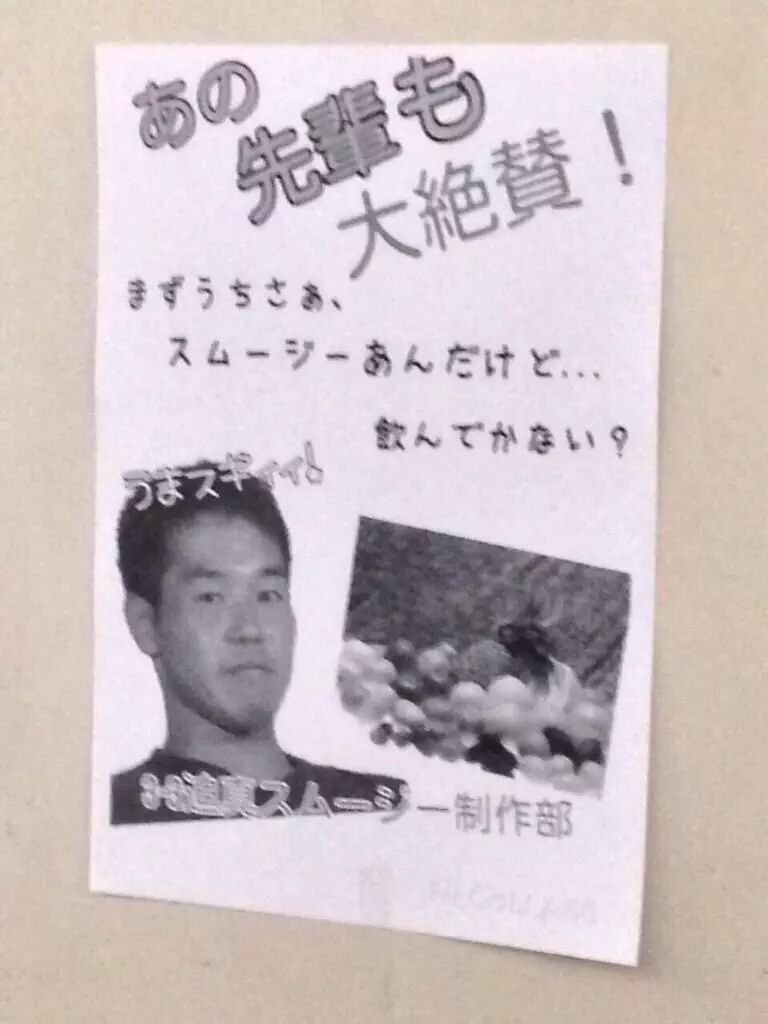 あの
先輩も
大絶賛！
まずうちさぁ、
スムージーあんだけど...
飲んでかない？
うまスギィィ!
3-3追真スムージー制作部